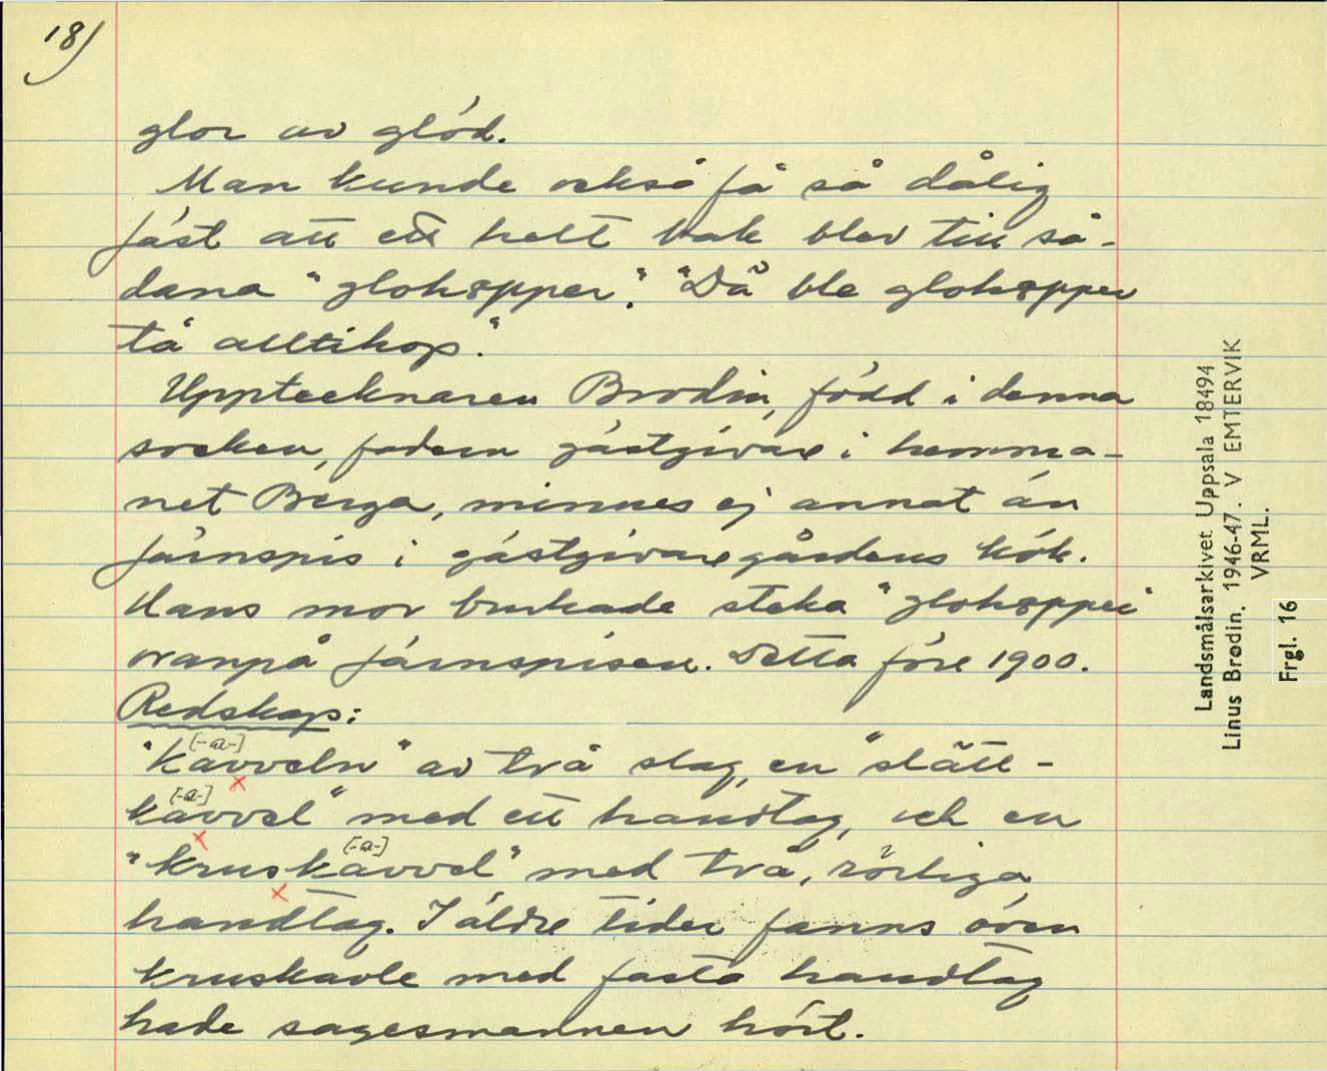 18)
glor av glöd.
Man kunde också få så dålig
jäst att ett helt bak blev till så-
dana "glohopper". "Då ble glohopper
tå alltihop."
Upptecknaren Brodin, född i denna
socken, fadern gästgivare i hemma-
net Berga, minnes ej annat än
järnspis i gästgivaregårdens kök.
Hans mor brukade steka "glohopper"
ovanpå järnspisen. Detta före 1900.
Redskap:
[-a-]
"kavveln" av två slag, en "slätt-
[-a-]
kavvel" med ett handtag, och en
[-a-]
"kruskavvel" med två, rörliga
handtag. I äldre tider fanns även
kruskavle med fasta handtag
hade sagesmannen hört.
Landsmålsarkivet Uppsala 18494
Linus Brodin. 1946-47. V EMTERVIK
VRML.
Frgl. 16